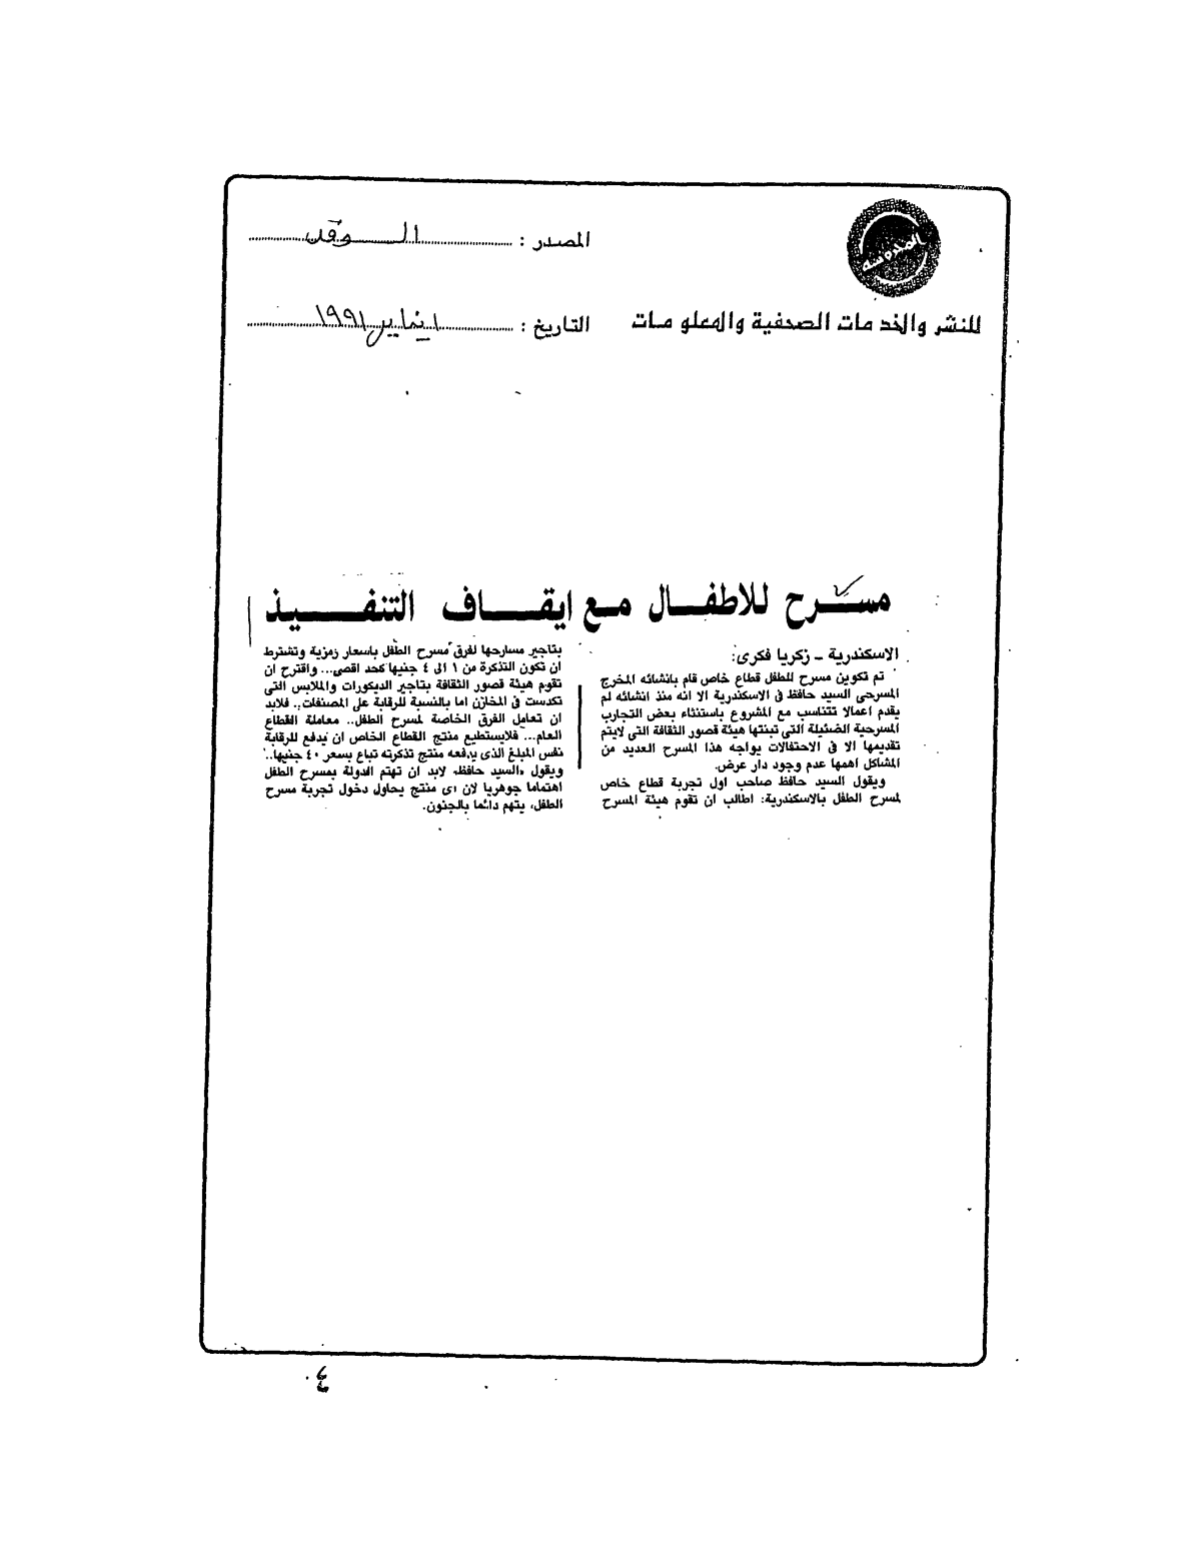 المحروسة
للنشر والخدمات الصحفية والمعلومات
المصدر : الــوفد
التاريخ : ١ يناير ١٩٩١
مســرح للاطفــال مــع ايقــاف التنفــيــذ
الاسكندرية ــ زكريا فكرى:
تم تكوين مسرح للطفل قطاع خاص قام بانشائه المخرج
المسرحى السيد حافظ فى الاسكندرية الا انه منذ انشائه لم
يقدم اعمالا تتناسب مع المشروع باستثناء بعض التجارب
المسرحية الضئيلة التى تبنتها هيئة قصور الثقافة التى لايتم
تقديمها الا فى الاحتفالات يواجه هذا المسرح العديد من
المشاكل اهمها عدم وجود دار عرض.
ويقول السيد حافظ صاحب اول تجربة قطاع خاص
لمسرح الطفل بالاسكندرية: اطالب ان تقوم هيئة المسرح
بتاجير مسارحها لفرق مسرح الطفل باسعار رمزية وتشترط
ان تكون التذكرة من ١ الى ٤ جنيها كحد اقصى... واقترح ان
تقوم هيئة قصور الثقافة بتاجير الديكورات والملابس التى
تكدست فى المخازن اما بالنسبة للرقابة على المصنفات.. فلابد
ان تعامل الفرق الخاصة لمسرح الطفل.. معاملة القطاع
العام... فلايستطيع منتج القطاع الخاص ان يدفع للرقابة
نفس المبلغ الذى يدفعه منتج تذكرته تباع بسعر ٤٠ جنيها..
ويقول «السيد حافظ» لابد ان تهتم الدولة بمسرح الطفل
اهتماما جوهريا لان اى منتج يحاول دخول تجربة مسرح
الطفل، يتهم دائما بالجنون.
٤